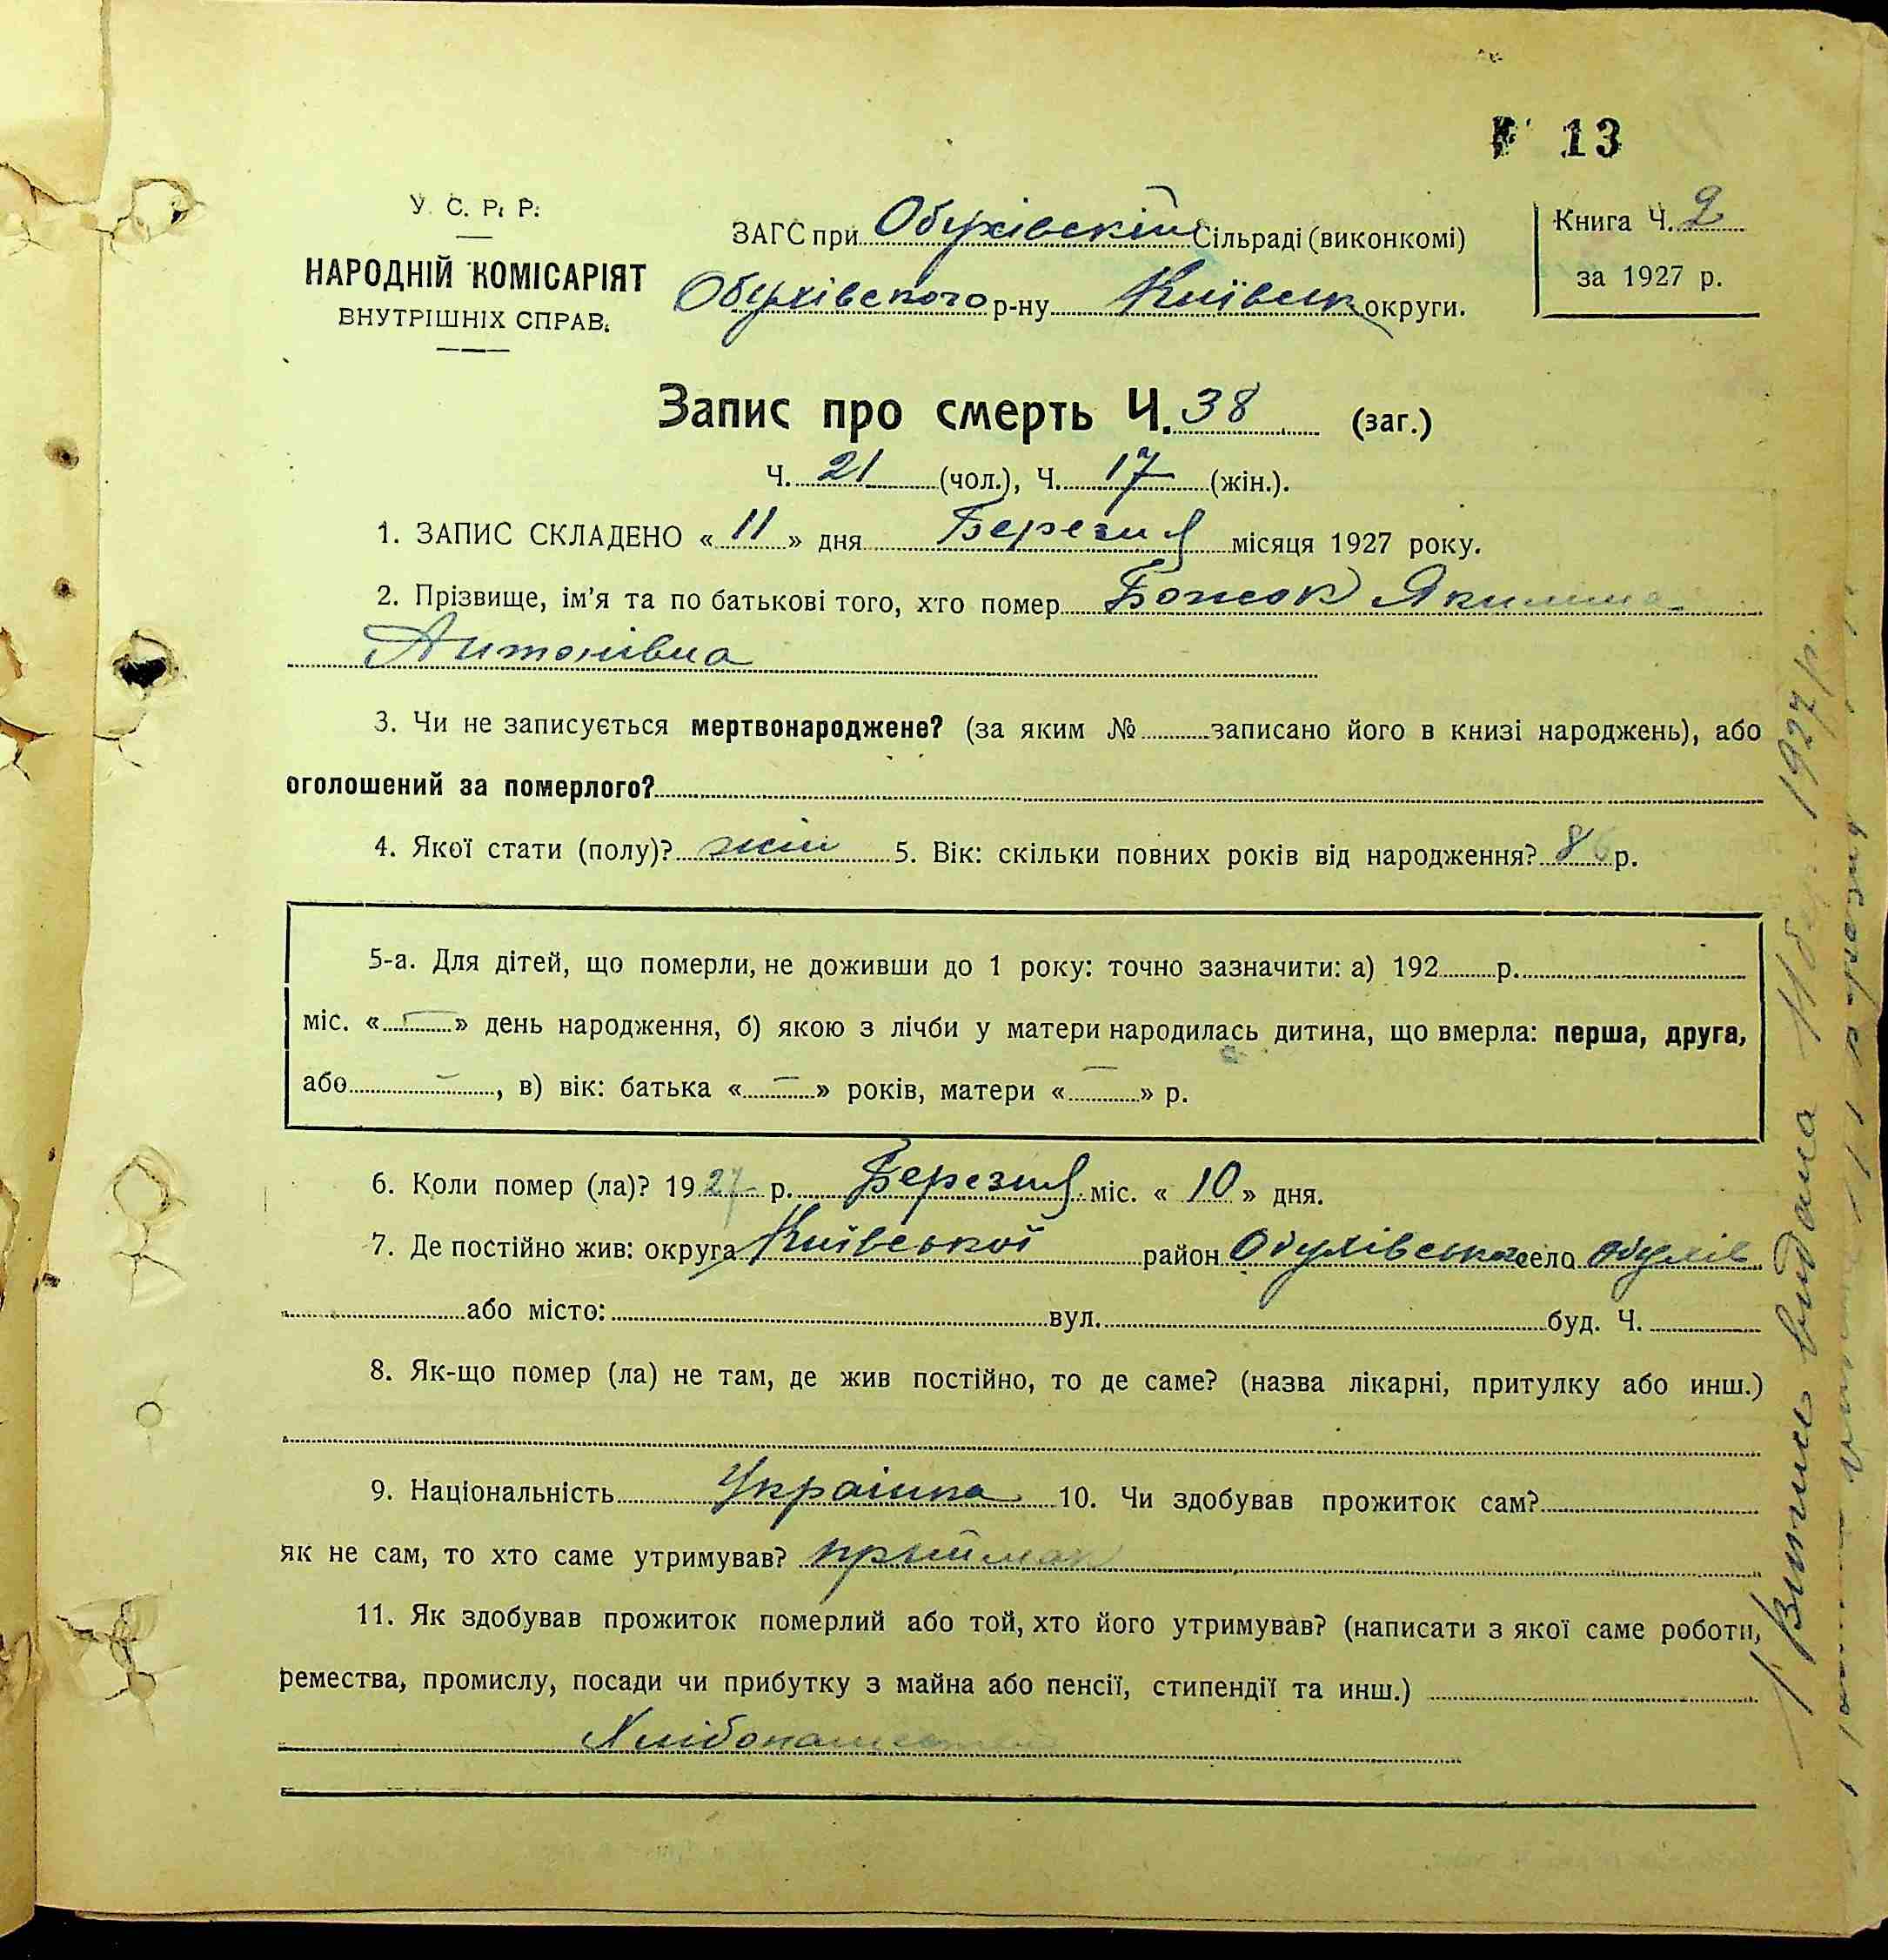 № 13
У. С. Р. Р.
НАРОДНІЙ КОМІСАРІЯТ
ВНУТРІШНІХ СПРАВ.
ЗАГС при Обухівській Сільраді (виконкомі)
Обухівського р-ну Київськ округи.
Книга Ч. 2
за 1927 р.
Запис про смерть Ч. 38 (заг.)
Ч. 21 (чол.), Ч. 17 (жін.).
1. ЗАПИС СКЛАДЕНО « 11 » дня Березня місяця 1927 року.
2. Прізвище, ім'я та по батькові того, хто помер Божок Якилина
Антонівна
3. Чи не записується мертвонароджене? (за яким № записано його в книзі народжень), або
оголошений за померлого?
4. Якої стати (полу)? жін 5. Вік: скільки повних років від народження? 86 р.
5-а. Для дітей, що померли, не доживши до 1 року: точно зазначити: а) 192 р.
міс. « — » день народження, б) якою з лічби у матери народилась дитина, що вмерла: перша, друга,
або — , в) вік: батька « — » років, матери « — » р.
6. Коли помер (ла)? 1927 р. Березня міс. « 10 » дня.
7. Де постійно жив: округа Київської район Обухівського село Обухів
або місто: вул. буд. Ч.
8. Як-що помер (ла) не там, де жив постійно, то де саме? (назва лікарні, притулку або инш.)
9. Національність Українка 10. Чи здобував прожиток сам?
як не сам, то хто саме утримував? приймак
11. Як здобував прожиток померлий або той, хто його утримував? (написати з якої саме роботи,
ремества, промислу, посади чи прибутку з майна або пенсії, стипендії та инш.)
Хлібопашество
Витись видана 11 бер. 1927 р.
11 березня